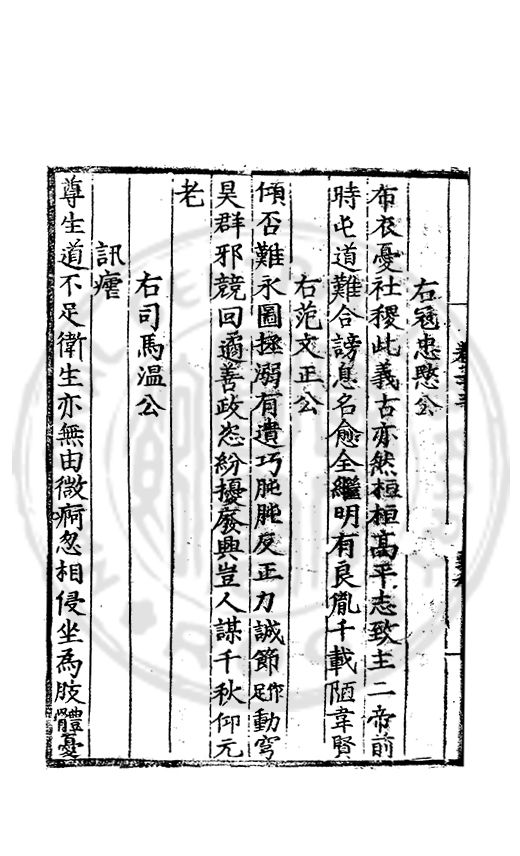 右寇忠愍公
布衣憂社稷此義古亦然桓桓高平志致主二帝前
時屯道難合謗息名愈全繼明有良胤千載陋韋賢
右范文正公
傾否難永圖拯溺有遺巧肫肫反正力誠節足作動穹
昊群邪競回遹善政恣紛擾廢興豈人謀千秋仰元
老
右司馬溫公
訊瘧
尊生道不足衛生亦無由微痾忽相侵坐為肢體憂